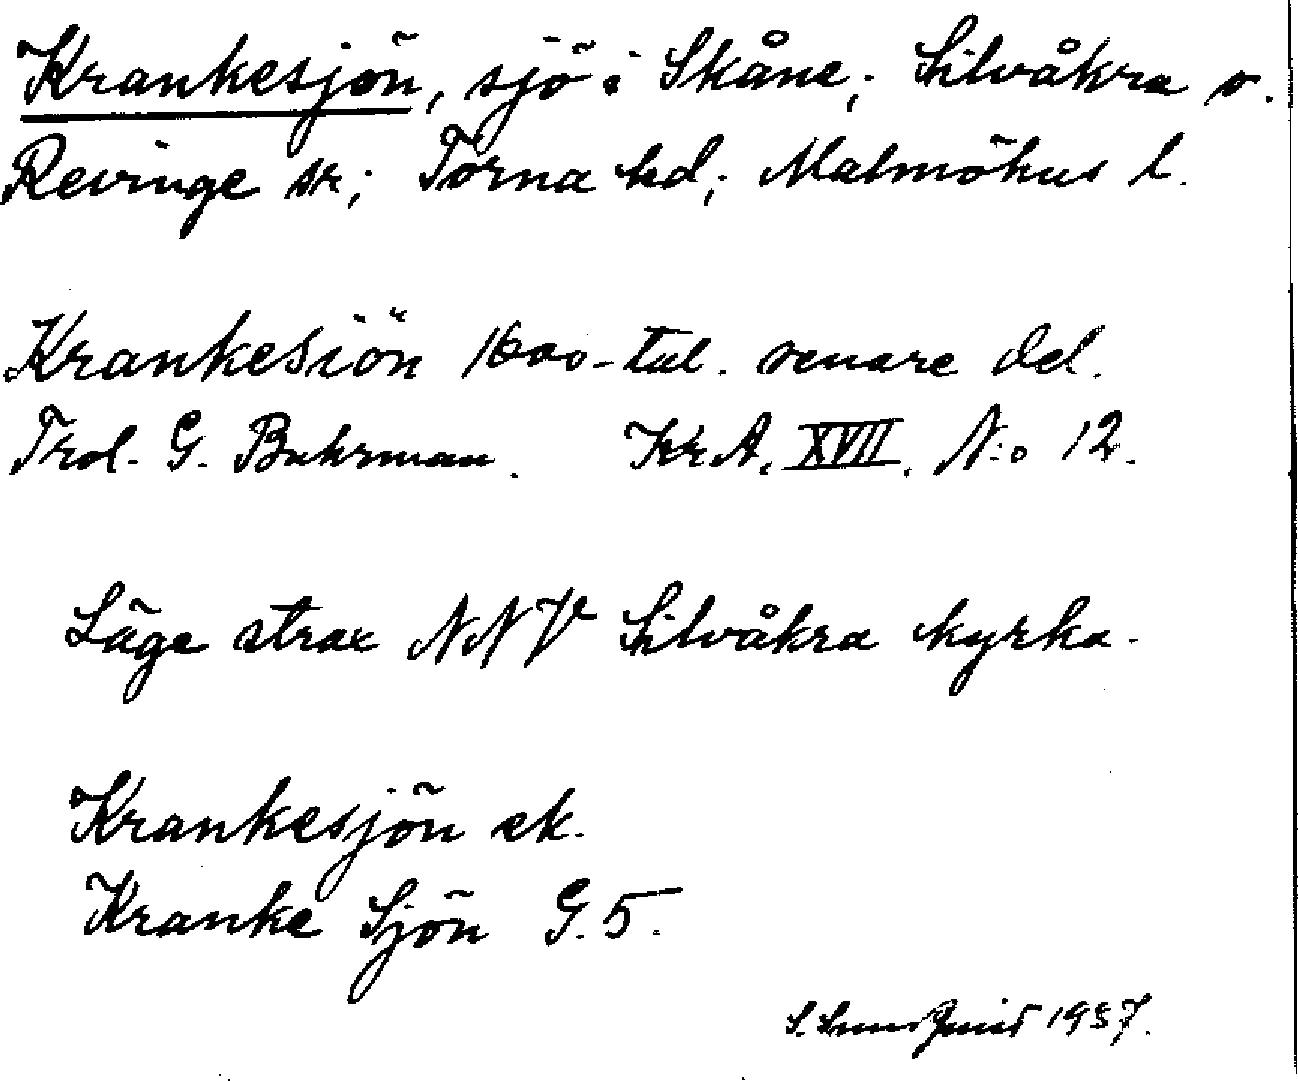 Krankesjön, sjö i Skåne; Silvåkra o.
Revinge sr; Torna hd; Malmöhus l.
Krankesiön 1600-tal. senare del.
Trol. G. Buhrman. Kr.A. XVII. N:o 12.
Läge strax NNV Silvåkra kyrka.
Krankesjön ek.
Kranke Sjön G.5.
1937.